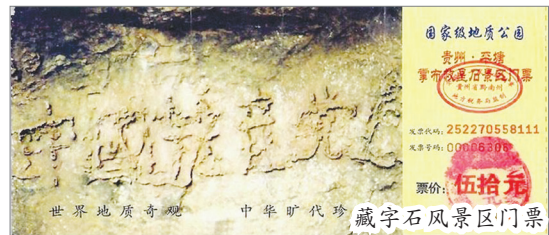 中國共産党
世界地质奇观
中华旷代珍
国家级地质公园
贵州·平塘
掌布救星石景区门票
贵州省黔南州
发票代码: 252270558111
发票号码: 00006306
票价: 伍拾元
藏字石风景区门票